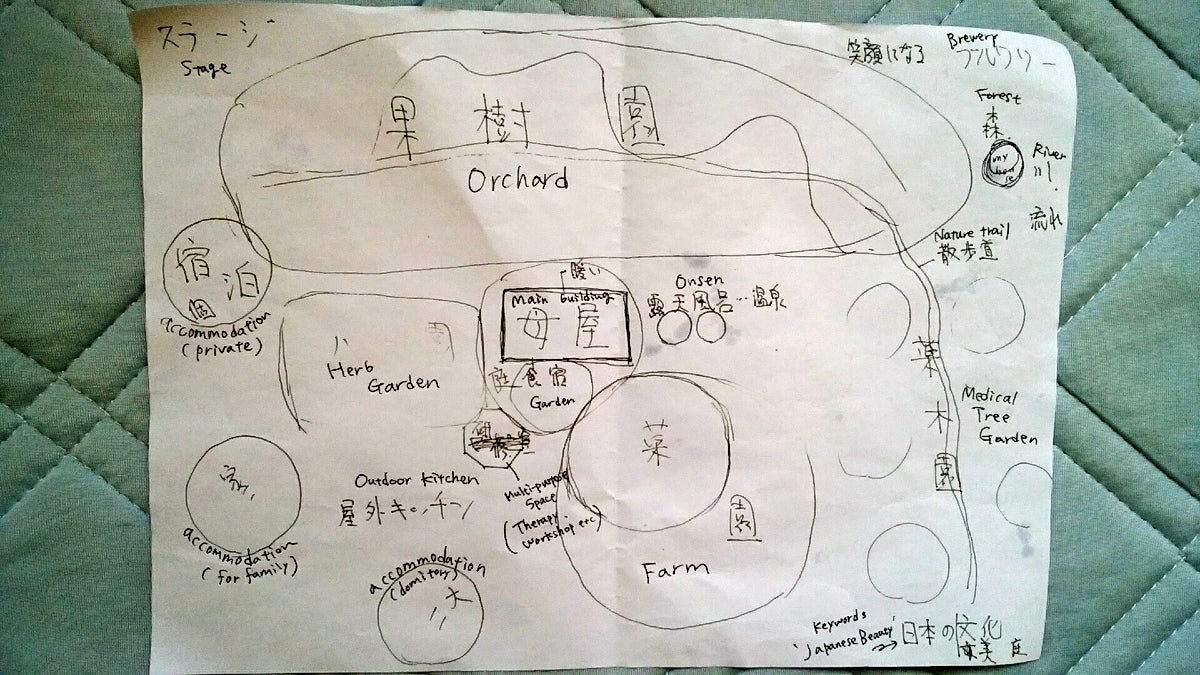 ステージ
Stage
笑顔になる
Brewery
ブルワリー
Forest
森
my house
River
川
流れ
果樹園
Orchard
Nature trail
散歩道
宿泊
個
accommodation
(private)
暖い
Main building
母屋
Onsen
露天風呂…温泉
ハ 園
Herb
Garden
庭 食 宿
Garden
薬木園
Medical
Tree
Garden
菜園
Farm
Multi-purpose
Space
(Therapy
workshop etc)
Outdoor Kitchen
屋外キッチン
家
accommodation
(for family)
accommodation
(domitory)
大
Keywords
'Japanese Beauty'
日本の文化
美